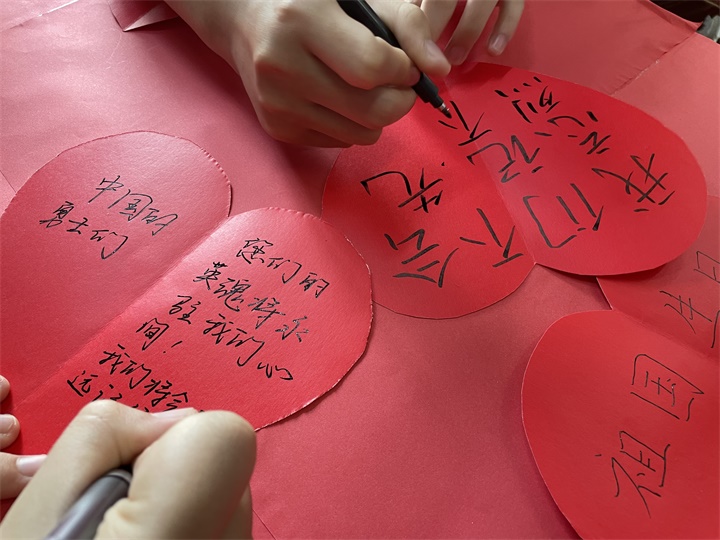 中国的
勇士们
您们的
英魂将永
驻我们心
间！
我们将会
远记
我们不会
祖国
生日